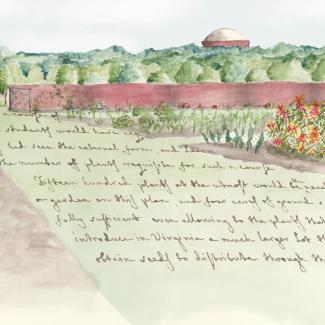 students would
had seen the
the number of plants requisite for such a course
Fifteen hundred plants at the utmost would be
a garden on this plan and four acres of ground
fully sufficient even allowing to the plants that
introduce in Virginia a much larger Lot
obtain seeds to distribute through th